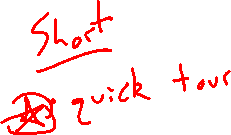 Short
quick tour